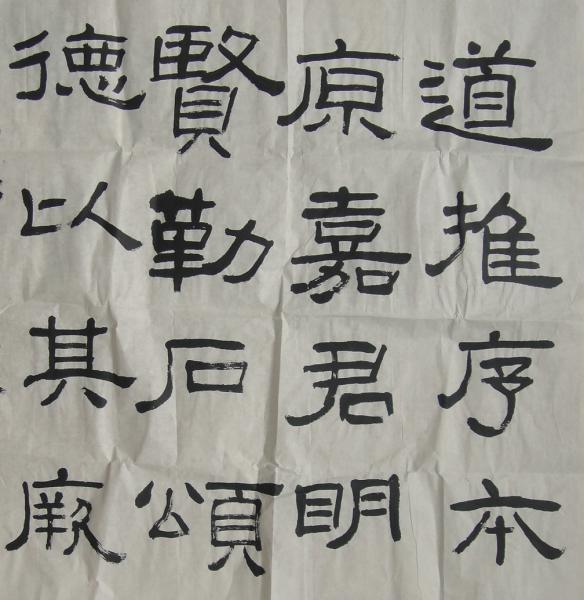 道推序本
原嘉君明
賢勒石頌
德以其厥